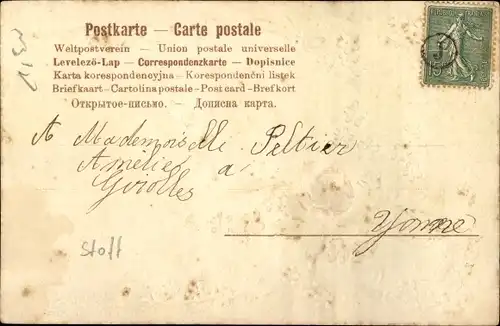 Postkarte — Carte postale
Weltpostverein — Union postale universelle
Levelező-Lap — Correspondenzkarte — Dopisnice
Karta korespondencyjna — Korespondenční listek
Briefkaart — Cartolina postale — Post card — Brefkort
Открытое-письмо. — Дописна карта.
A Mademoiselle Peltier
Amélie à
Yonne
Stoff